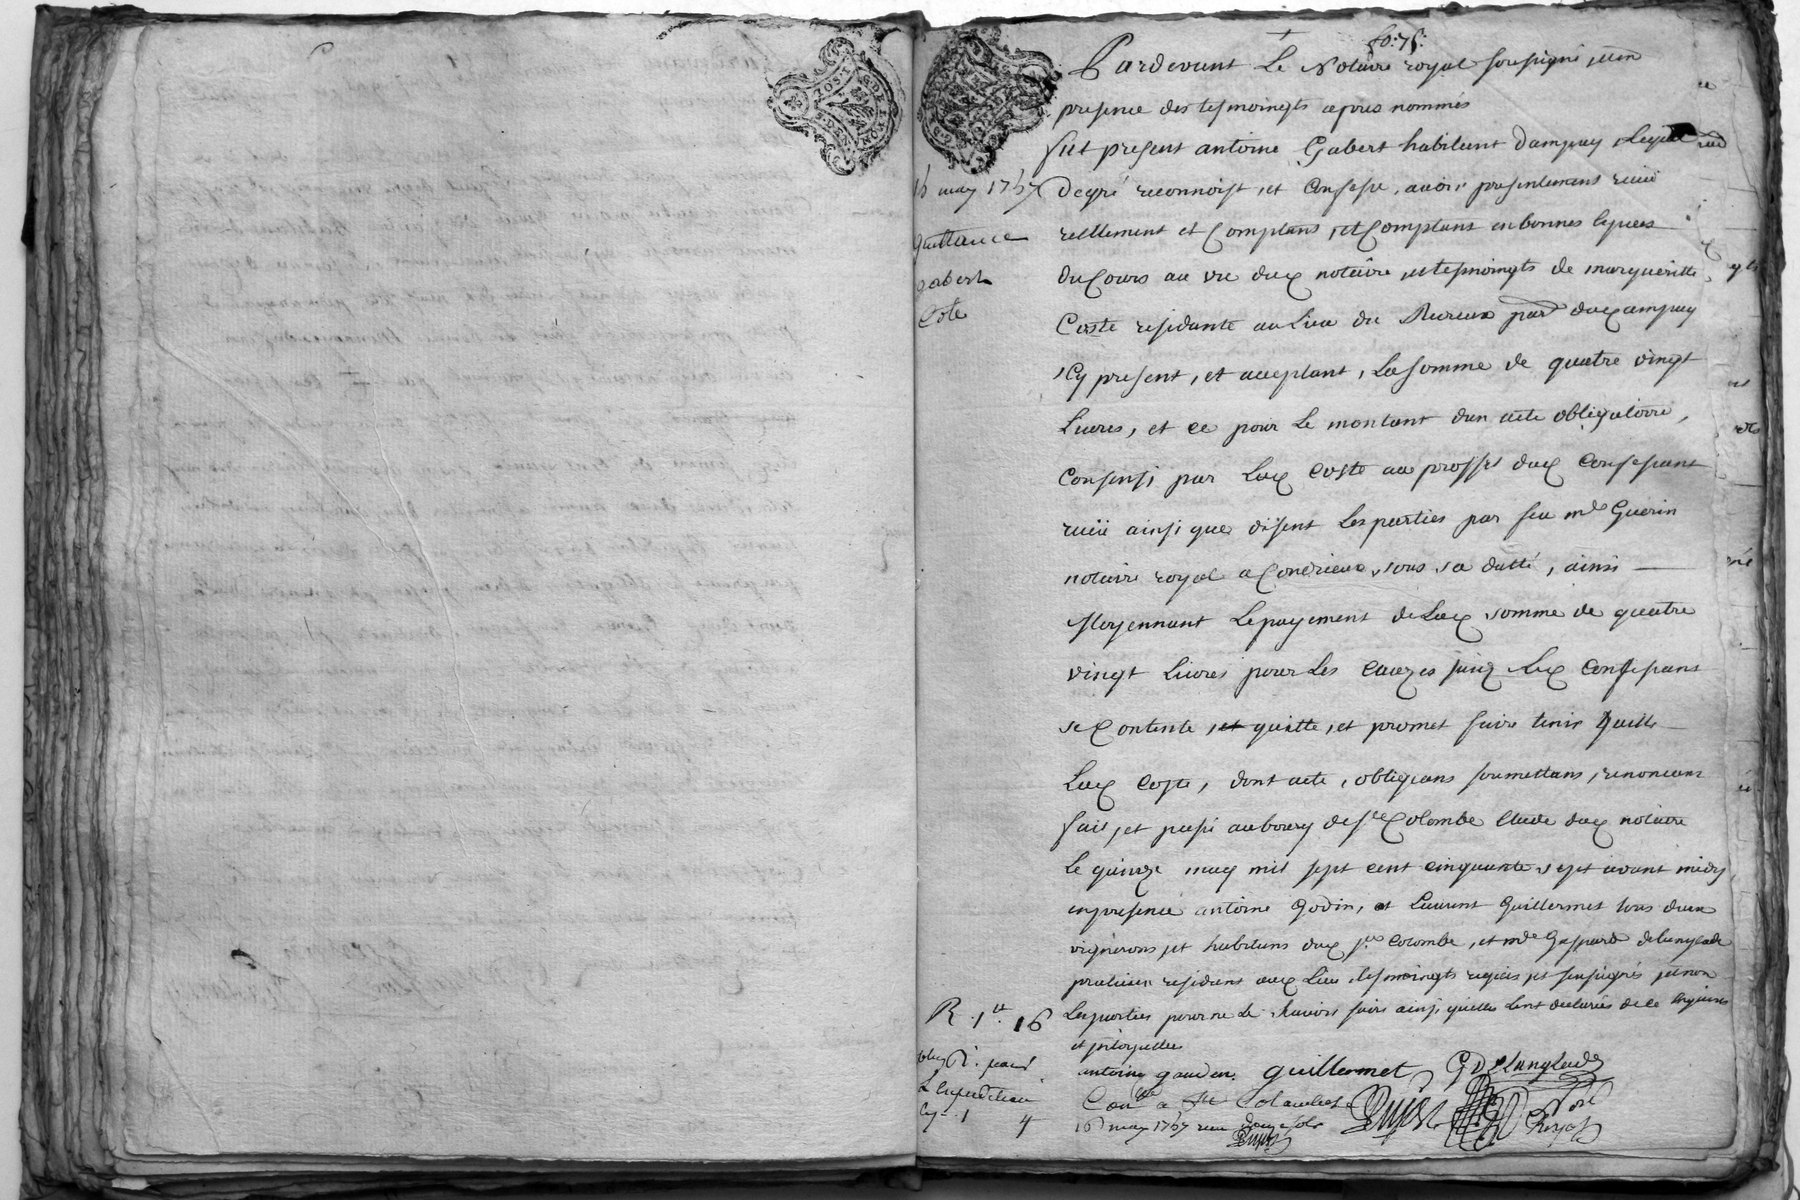 fo: 75:
Pardevant Le Notaire royal soussigné, et en
presence des tesmoingts apres nommés
fut present antoine Gabert habitant Dampuy, Lequel
15 may 1757
quittance
gabert
Coste
degré reconnoist, et Confesse, avoir presentement receu
reellement et Comptant, et Comptant en bonnes especes
du Cours au vu dud notaire, et tesmoingts de margueritte
Coste residante au Lieu du Rureux par.se dud ampuy
icy present, et acceptant, La somme de quatre vingt
Livres, et ce pour Le montant dun acte obligatoire,
Consensi par Lad Coste au proffit dud Confessant
receu ainsi que disent Les parties par feu me Guerin
notaire royal a Condrieux, sous sa datte, ainsi
Moyennant Le payement de Lad somme de quatre
vingt Livres pour Les causes susd Led Confessant
se Contente, et quitte, et promet faire tenir quitte
Lad Coste, dont acte, obligeans soumettans, renoncans
fait, et passé au bourg de Ste Colombe Etude dud notaire
Le quinze may mil sept cent cinquante sept avant midy
en presence antoine Godin, et Laurent Guillermet tous deux
vignerons, et habitans dud Ste Colombe, et me Gaspard delanglade
praticien residant aud Lieu, tesmoingts requis, et soussignés, et non
Les parties pour ne Le scavoir faire ainsi quelles lont declarées de ce enquises
et interpellées
R. 1tt. 16
plus R. pour
L'expedition
cy. 1 4
antoine gaudin. guillermet GDelanglade
Con.lé a Ste Colombe Le
16 may 1757 receu